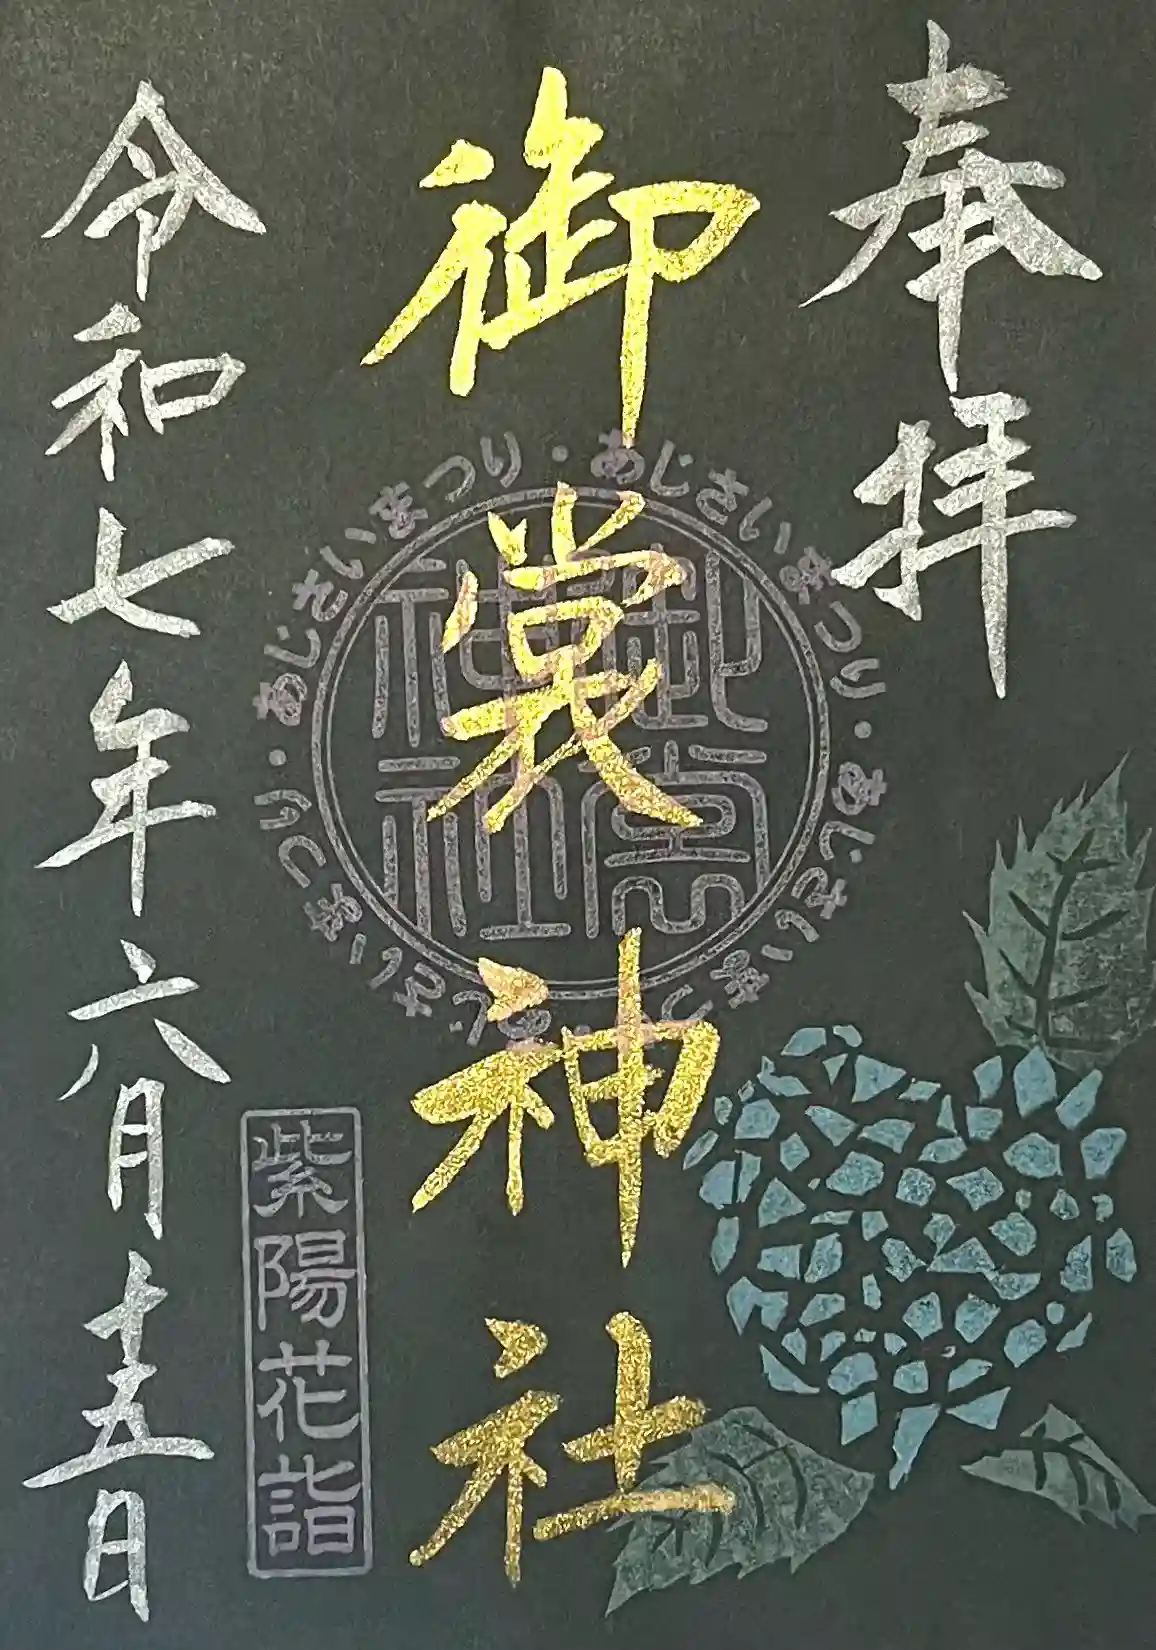 奉拝
御裳神社
あじさいまつり・あじさいまつり・あじさいまつり・あじさいまつり・
御裳神社
紫陽花詣
令和七年六月十五日